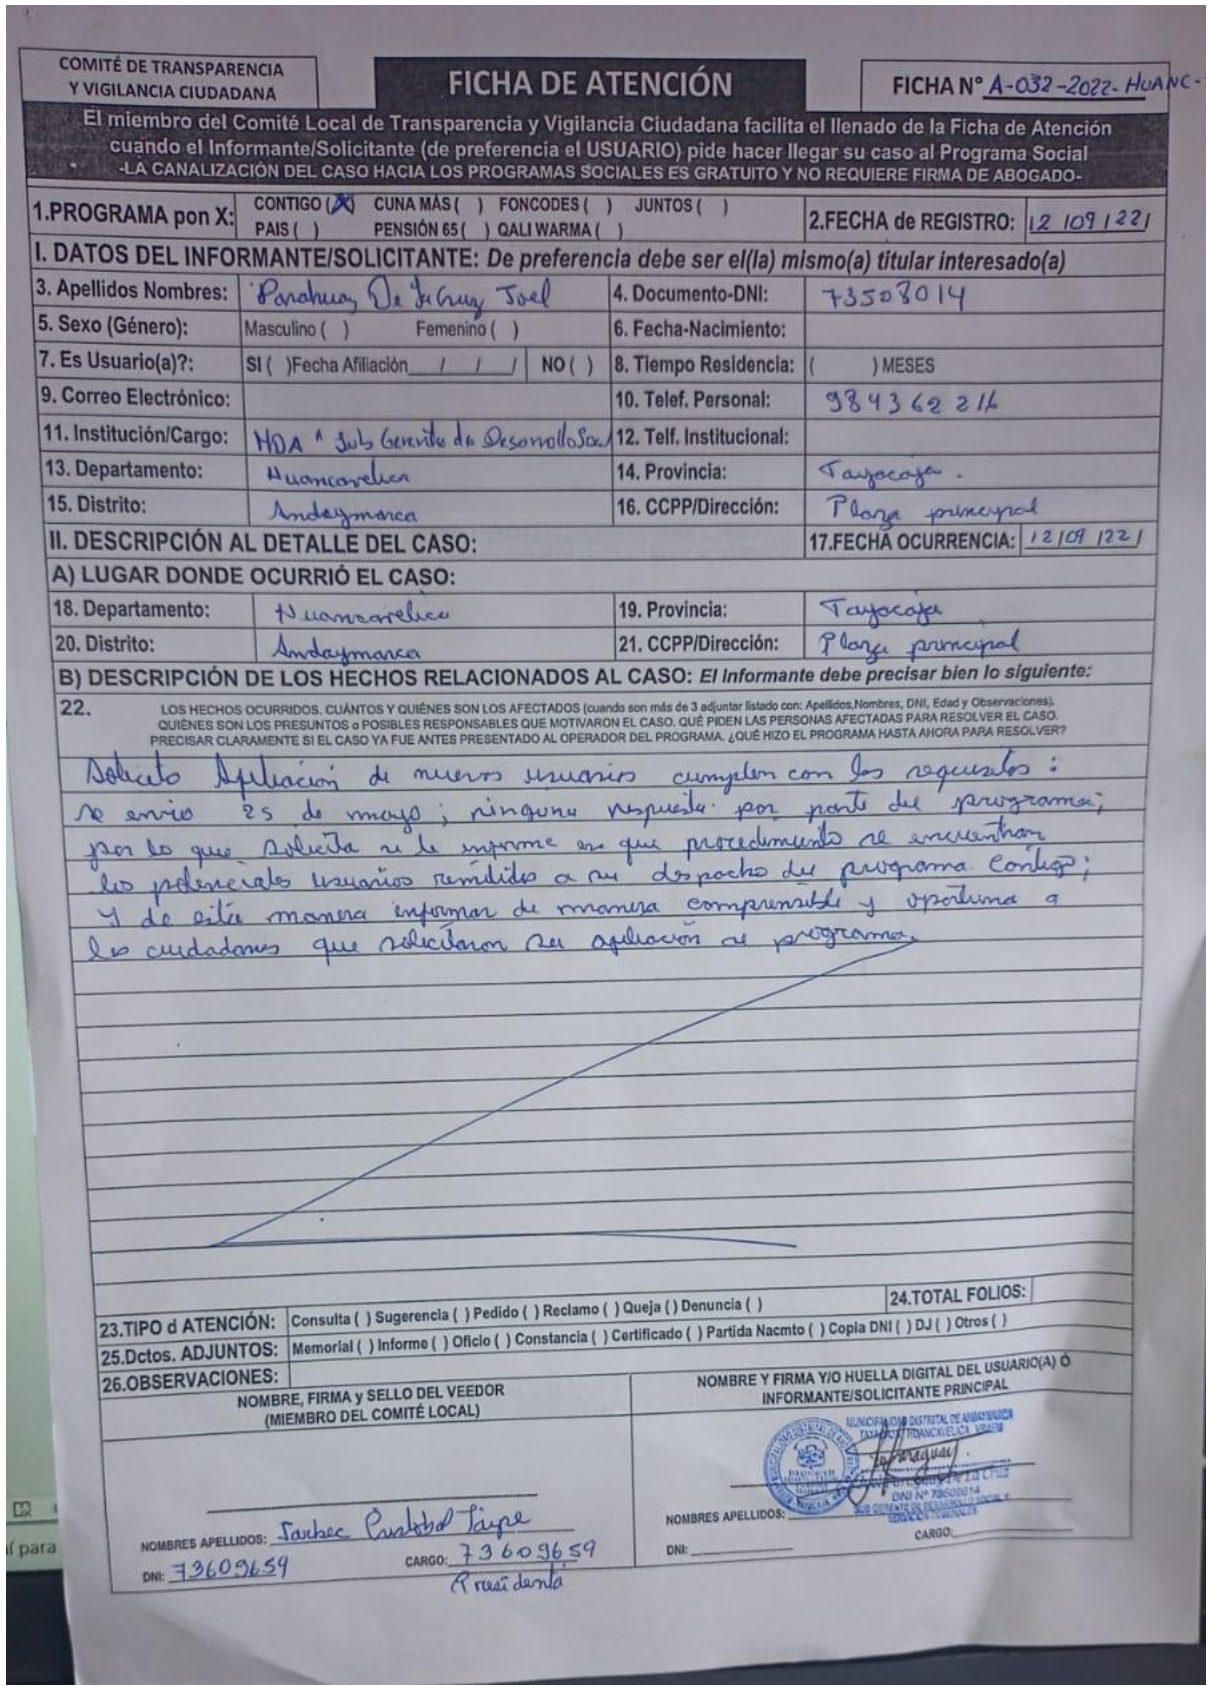 COMITÉ DE TRANSPARENCIA
Y VIGILANCIA CIUDADANA
FICHA DE ATENCIÓN
FICHA N° A-032-2022-HUANC-
El miembro del Comité Local de Transparencia y Vigilancia Ciudadana facilita el llenado de la Ficha de Atención
cuando el Informante/Solicitante (de preferencia el USUARIO) pide hacer llegar su caso al Programa Social
-LA CANALIZACIÓN DEL CASO HACIA LOS PROGRAMAS SOCIALES ES GRATUITO Y NO REQUIERE FIRMA DE ABOGADO-
1.PROGRAMA pon X: CONTIGO (X) CUNA MÁS ( ) FONCODES ( ) JUNTOS ( )
PAIS ( ) PENSIÓN 65 ( ) QALI WARMA ( )
2.FECHA de REGISTRO: 12/09/22/
I. DATOS DEL INFORMANTE/SOLICITANTE: De preferencia debe ser el(la) mismo(a) titular interesado(a)
3. Apellidos Nombres: De La Cruz Joel 4. Documento-DNI: 73508014
5. Sexo (Género): Masculino ( ) Femenino ( ) 6. Fecha-Nacimiento:
7. Es Usuario(a)?: SI ( )Fecha Afiliación / / / NO ( ) 8. Tiempo Residencia: ( ) MESES
9. Correo Electrónico: 10. Telef. Personal: 984362216
11. Institución/Cargo: MDA Sub Gerente de Desarrollo Social 12. Telf. Institucional:
13. Departamento: Huancavelica 14. Provincia: Tayacaja.
15. Distrito: Andaymarca 16. CCPP/Dirección: Plaza principal
II. DESCRIPCIÓN AL DETALLE DEL CASO: 17.FECHA OCURRENCIA: 12/09/22/
A) LUGAR DONDE OCURRIÓ EL CASO:
18. Departamento: Huancavelica 19. Provincia: Tayacaja
20. Distrito: Andaymarca 21. CCPP/Dirección: Plaza principal
B) DESCRIPCIÓN DE LOS HECHOS RELACIONADOS AL CASO: El Informante debe precisar bien lo siguiente:
22. LOS HECHOS OCURRIDOS, CUÁNTOS Y QUIÉNES SON LOS AFECTADOS (cuando son más de 3 adjuntar listado con: Apellidos,Nombres, DNI, Edad y Observaciones).
QUIÉNES SON LOS PRESUNTOS o POSIBLES RESPONSABLES QUE MOTIVARON EL CASO. QUÉ PIDEN LAS PERSONAS AFECTADAS PARA RESOLVER EL CASO.
PRECISAR CLARAMENTE SI EL CASO YA FUE ANTES PRESENTADO AL OPERADOR DEL PROGRAMA. ¿QUÉ HIZO EL PROGRAMA HASTA AHORA PARA RESOLVER?
Solicito Afiliación de nuevos usuarios cumplen con los requisitos:
se envio 25 de mayo; ninguna respuesta por parte del programa;
por lo que solicita se le informe en que procedimiento se encuentran
los potenciales usuarios remitidos a su despacho del programa Contigo;
y de esta manera informar de manera comprensible y oportuna a
los ciudadanos que solicitaron su afiliación al programa.
23.TIPO d ATENCIÓN: Consulta ( ) Sugerencia ( ) Pedido ( ) Reclamo ( ) Queja ( ) Denuncia ( ) 24.TOTAL FOLIOS:
25.Dctos. ADJUNTOS: Memorial ( ) Informe ( ) Oficio ( ) Constancia ( ) Certificado ( ) Partida Nacmto ( ) Copia DNI ( ) DJ ( ) Otros ( )
26.OBSERVACIONES:
NOMBRE, FIRMA y SELLO DEL VEEDOR
(MIEMBRO DEL COMITÉ LOCAL)
NOMBRE Y FIRMA Y/O HUELLA DIGITAL DEL USUARIO(A) Ó
INFORMANTE/SOLICITANTE PRINCIPAL
MUNICIPALIDAD DISTRITAL DE ANDAYMARCA
TAYACAJA HUANCAVELICA VRAEM
De La Cruz
SUB GERENTE DE DESARROLLO SOCIAL Y
SERVICIOS COMUNALES
NOMBRES APELLIDOS:
CARGO:
DNI:
NOMBRES APELLIDOS: Cristobal Taipe
DNI: 73609659 CARGO: 73609659
Presidenta